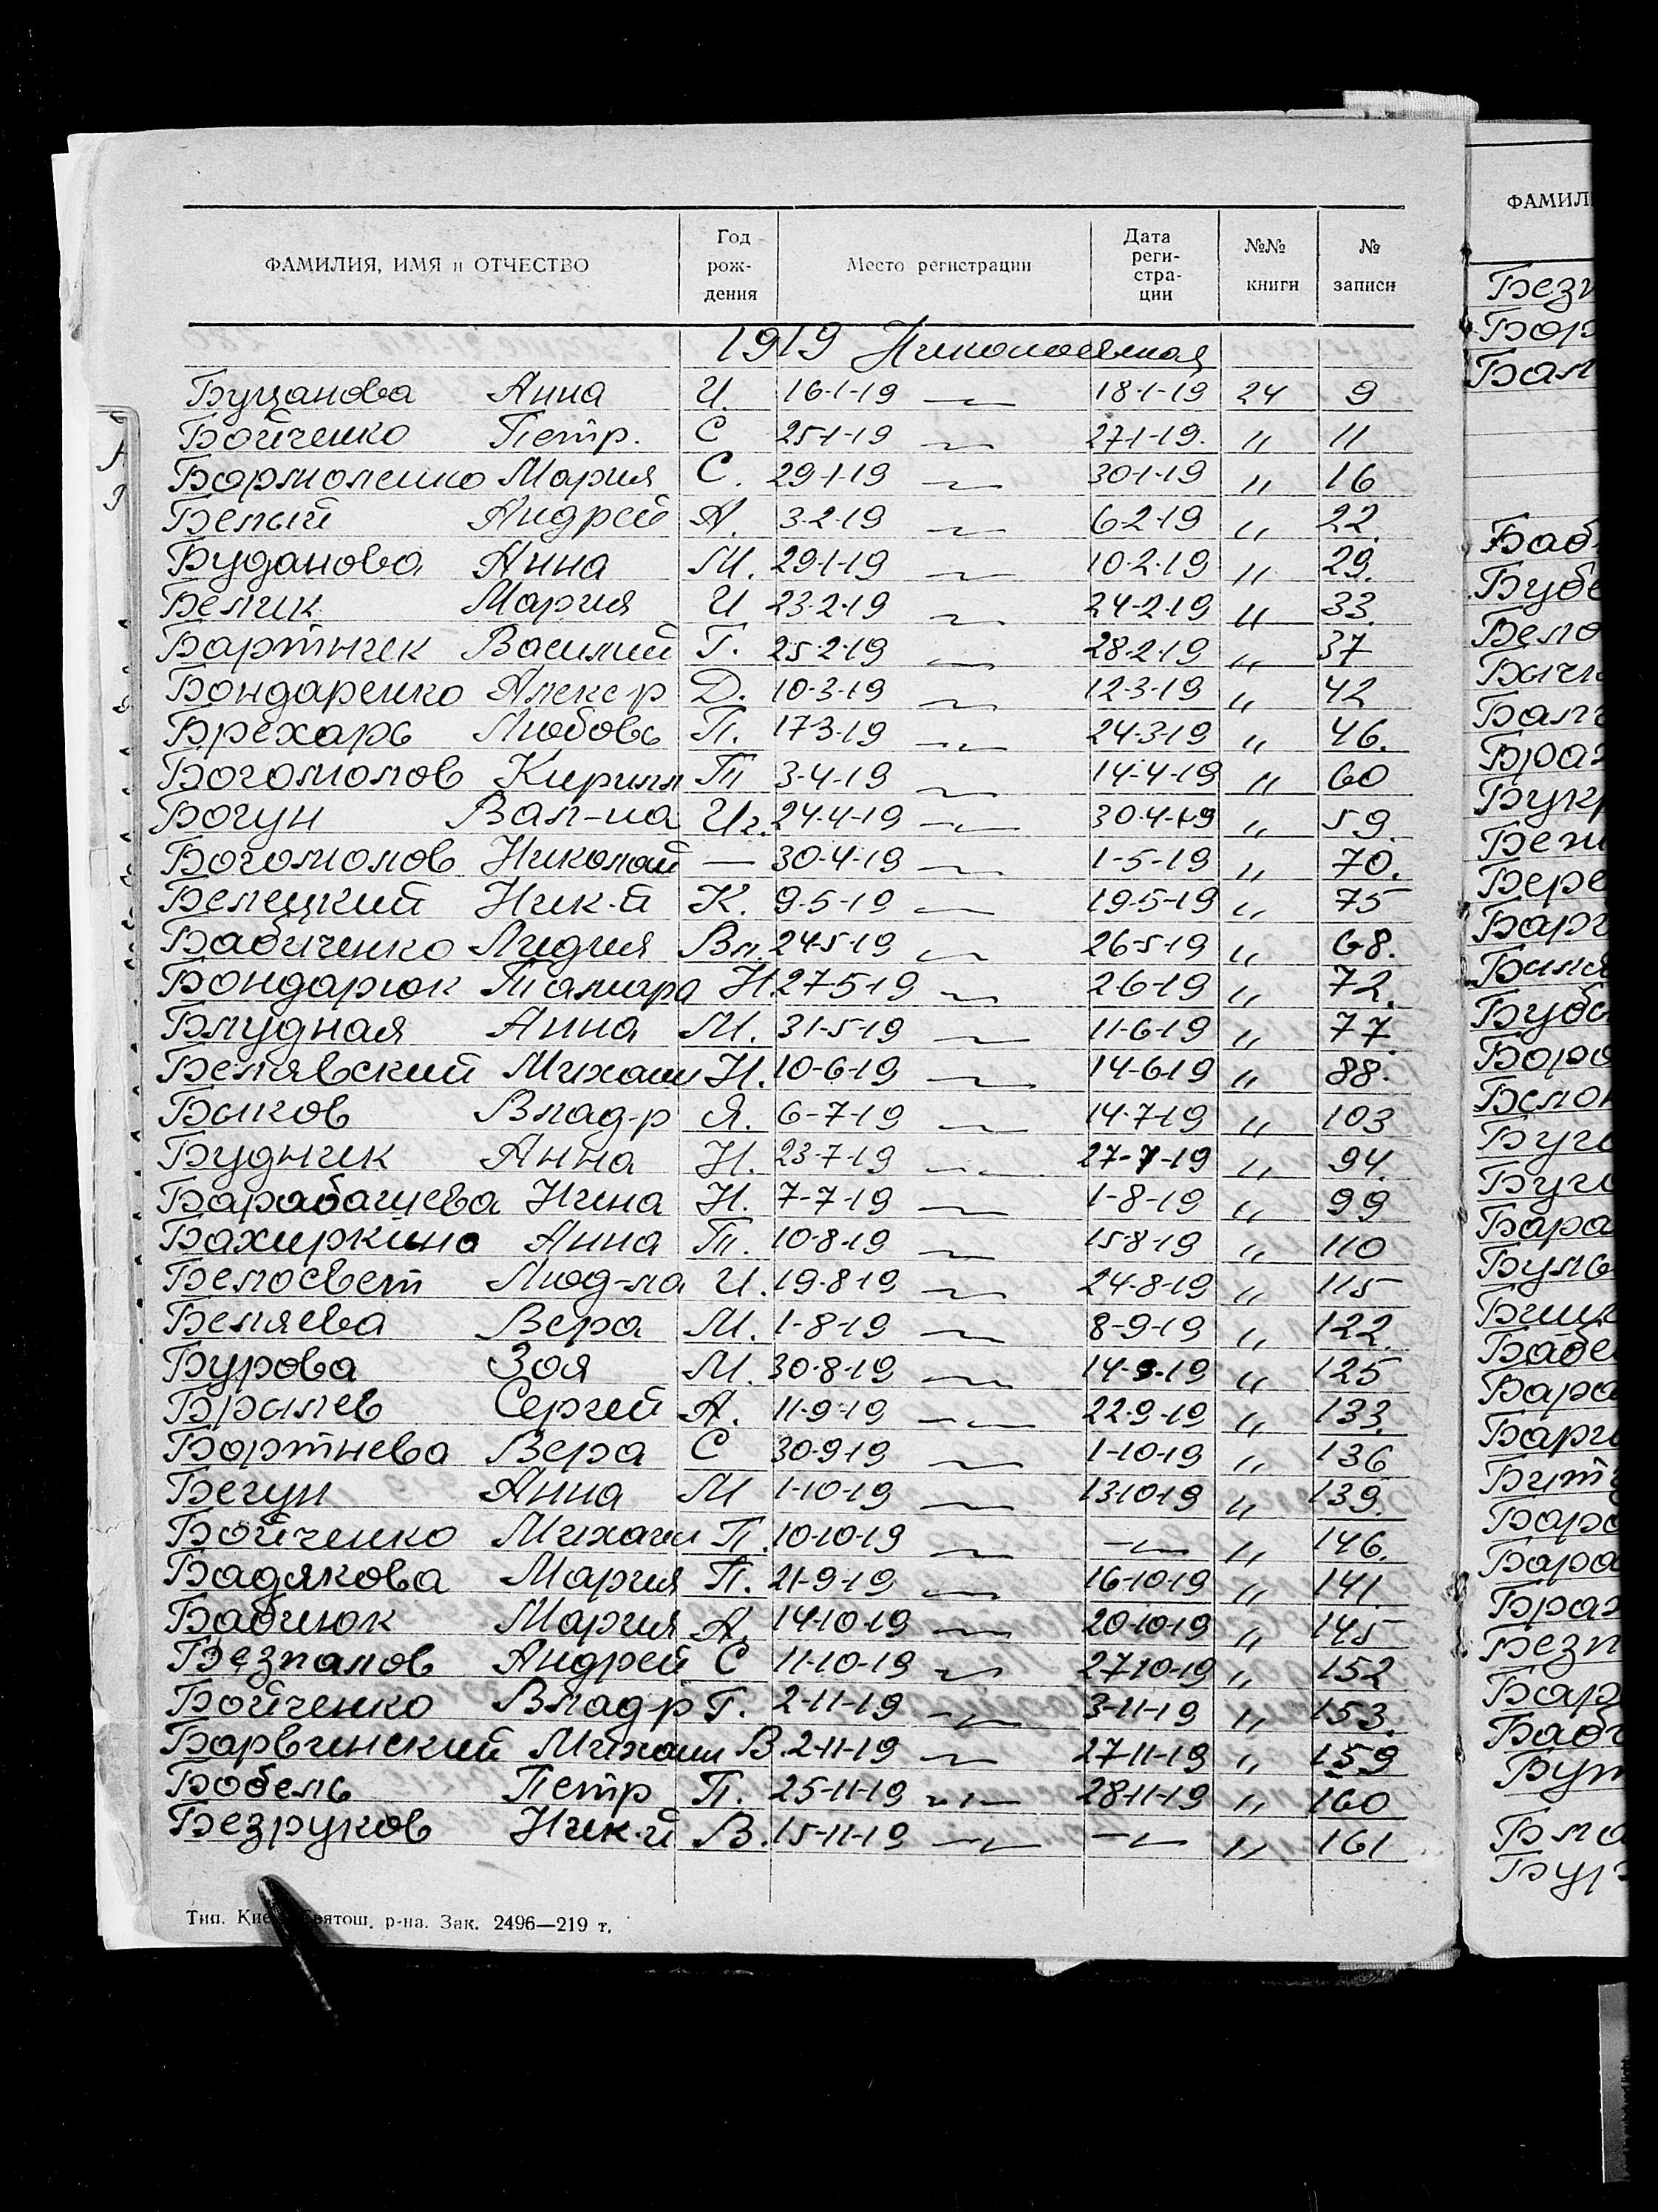 ФАМИЛИЯ, ИМЯ и ОТЧЕСТВО Год рож-дения Место регистрации Дата реги-стра-ции №№ книги № записи
1919
Буцанова Анна И. 16-1-19 18-1-19 24 9
Бойченко Петр. С 25-1-19 27-1-19. " 11
Бормоленко Мария С. 29-1-19 30-1-19 " 16
Белый Андрей А. 3-2-19 6-2-19 " 22.
Буданова Анна М. 29-1-19 10-2-19 " 29.
Белик Мария И 23-2-19 24-2-19 " 33.
Бартнчек Василий Г. 25-2-19 28-2-19 " 37
Бондаренко Алекср Д. 10-3-19 12-3-19 " 42
Брехарь Любовь П. 17-3-19 24-3-19 " 46.
Богомолов Кирилл Т 3-4-19 14-4-19 " 60
Богун Вал-на Иг. 24-4-19 30-4-19 " 59.
Богомолов Николай — 30-4-19 1-5-19 " 70.
Белецкий Ник-й К. 9-5-19 19-5-19 " 75
Бабиченко Лидия Вл. 24-5-19 26-5-19 " 68.
Бондарюк Тамара Н. 27-5-19 2-6-19 " 72.
Блудная Анна М. 31-5-19 11-6-19 " 77.
Белявский Михаил Н. 10-6-19 14-6-19 " 88.
Быков Влад-р Я. 6-7-19 14-7-19 " 103
Будник Анна Н. 23-7-19 27-7-19 " 94.
Барабашева Нина Н. 7-7-19 1-8-19 " 99
Бахиркина Анна Т. 10-8-19 15-8-19 " 110
Белосвет Люд-ла И. 19-8-19 24-8-19 " 115
Беляева Вера М. 1-8-19 8-9-19 " 122.
Бурова Зоя М. 30-8-19 14-9-19 " 125
Бралев Сергей А. 11-9-19 22-9-19 " 133.
Бортнева Вера С 30-9-19 1-10-19 " 136
Бегун Анна М 1-10-19 13-10-19 " 139.
Бойченко Михаил П. 10-10-19 " 146.
Бадякова Мария П. 21-9-19 16-10-19 " 141.
Бабчюк Мария А. 14-10-19 20-10-19 " 145
Безпалов Андрей С 11-10-19 27-10-19 " 152
Бойченко Влад-р Г. 2-11-19 3-11-19 " 153.
Барвинский Михаил В. 2-11-19 27-11-19 " 159
Бобель Петр П. 25-11-19 28-11-19 " 160
Безруков Ник-й В. 15-11-19 " 161
Тип. р-на. Зак. 2496—219 т.